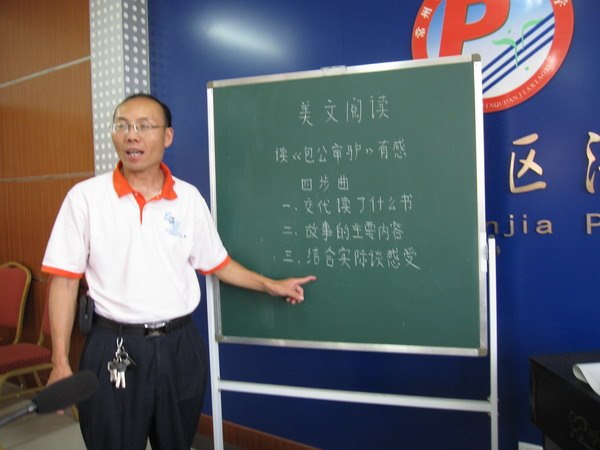 常州
P
美文阅读
读《包公审驴》有感
四步曲
一、交代读了什么书
二、故事的主要内容
三、结合实际谈感受
区
njia P